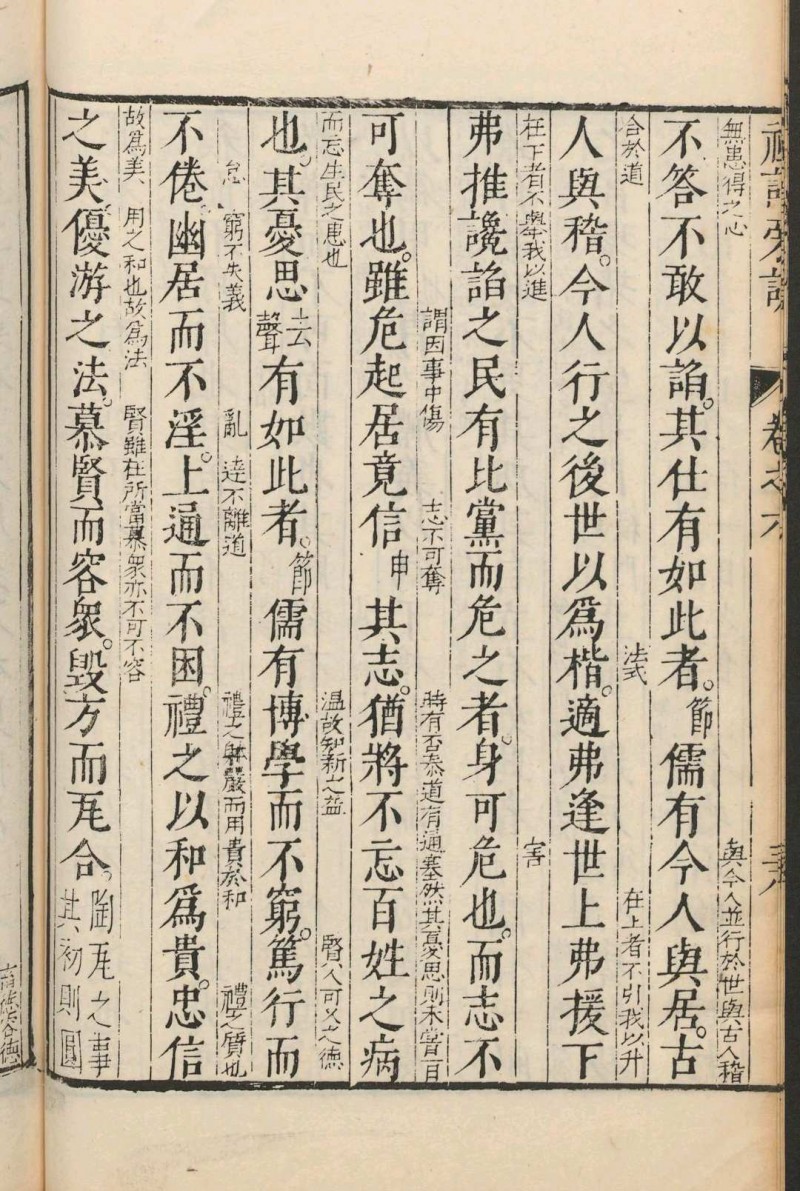 禮記旁訓 卷之六
無患得之心 與今人並行於世與古人稽
不答不敢以諂。其仕有如此者。節儒有今人與居。古
合於道 法式 在上者不引我以升
人與稽。今人行之後世以爲楷。適弗逢世上弗援下
在下者不舉我以進 害
弗推讒諂之民有比黨而危之者。身可危也。而志不
謂因事中傷 志不可奪 時有否泰道有通塞然其憂思則未嘗一日
可奪也。雖危起居竟信申其志。猶將不忘百姓之病
而忘生民之患也 温故知新之益 賢人可久之德
也。其憂思去聲有如此者。節儒有博學而不窮。篤行而
怠 窮不失義 亂 達不離道 禮之體嚴而用貴於和 禮之質也
不倦。幽居而不淫。上通而不困。禮之以和爲貴。忠信
故爲美 用之和也故爲法 賢雖在所當慕衆亦不可不容
之美。優游之法。慕賢而容衆。毀方而瓦合。陶瓦之事其初則圓